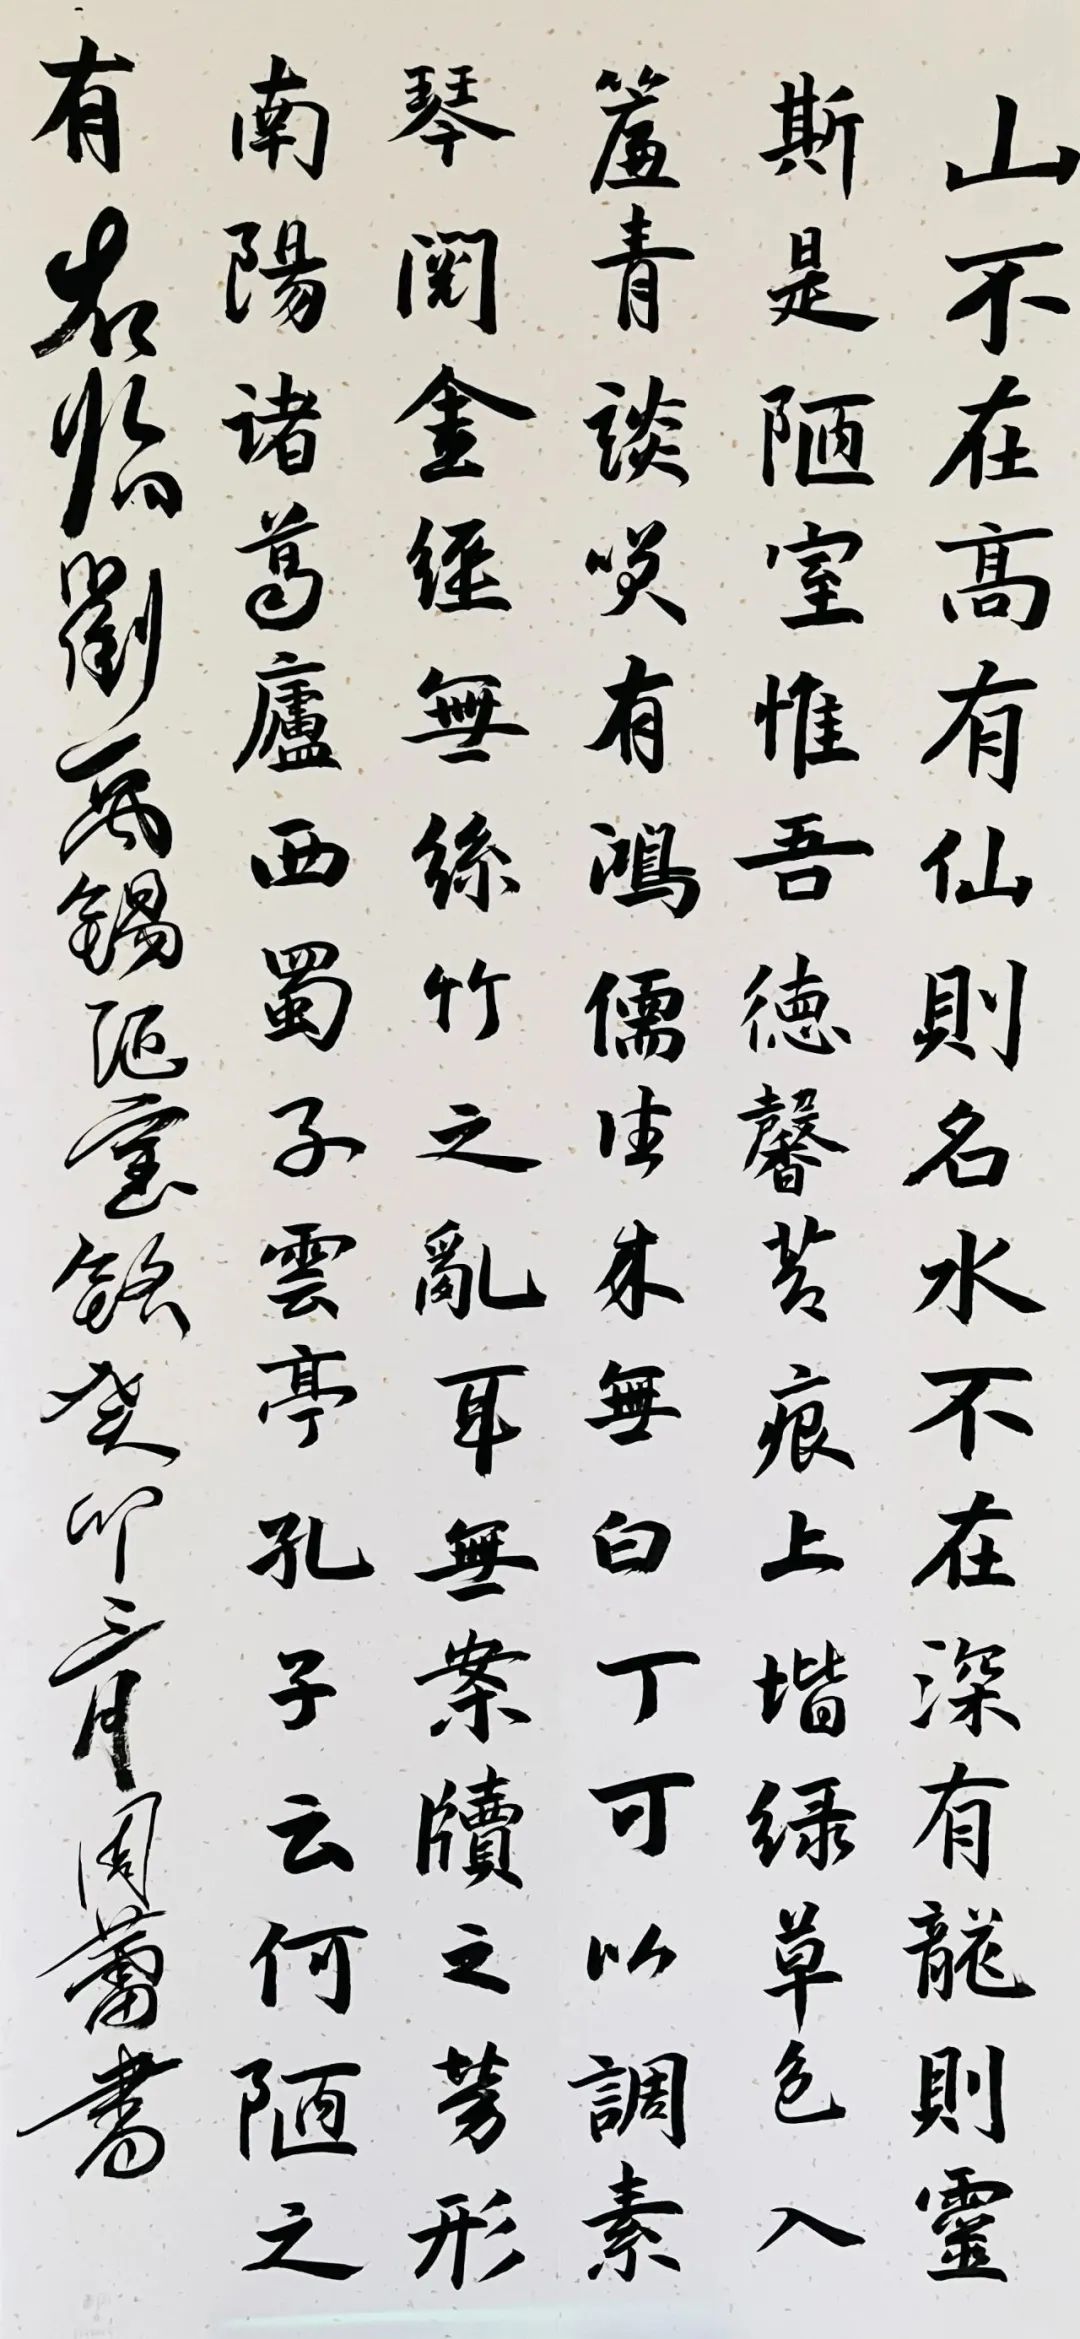 山不在高有仙則名水不在深有龍則靈
斯是陋室惟吾德馨苔痕上堦绿草色入
簾青談笑有鴻儒往来無白丁可以調素
琴閱金經無絲竹之亂耳無案牘之勞形
南陽诸葛廬西蜀子雲亭孔子云何陋之
有右临劉禹錫陋室銘癸卯三月周蕾書